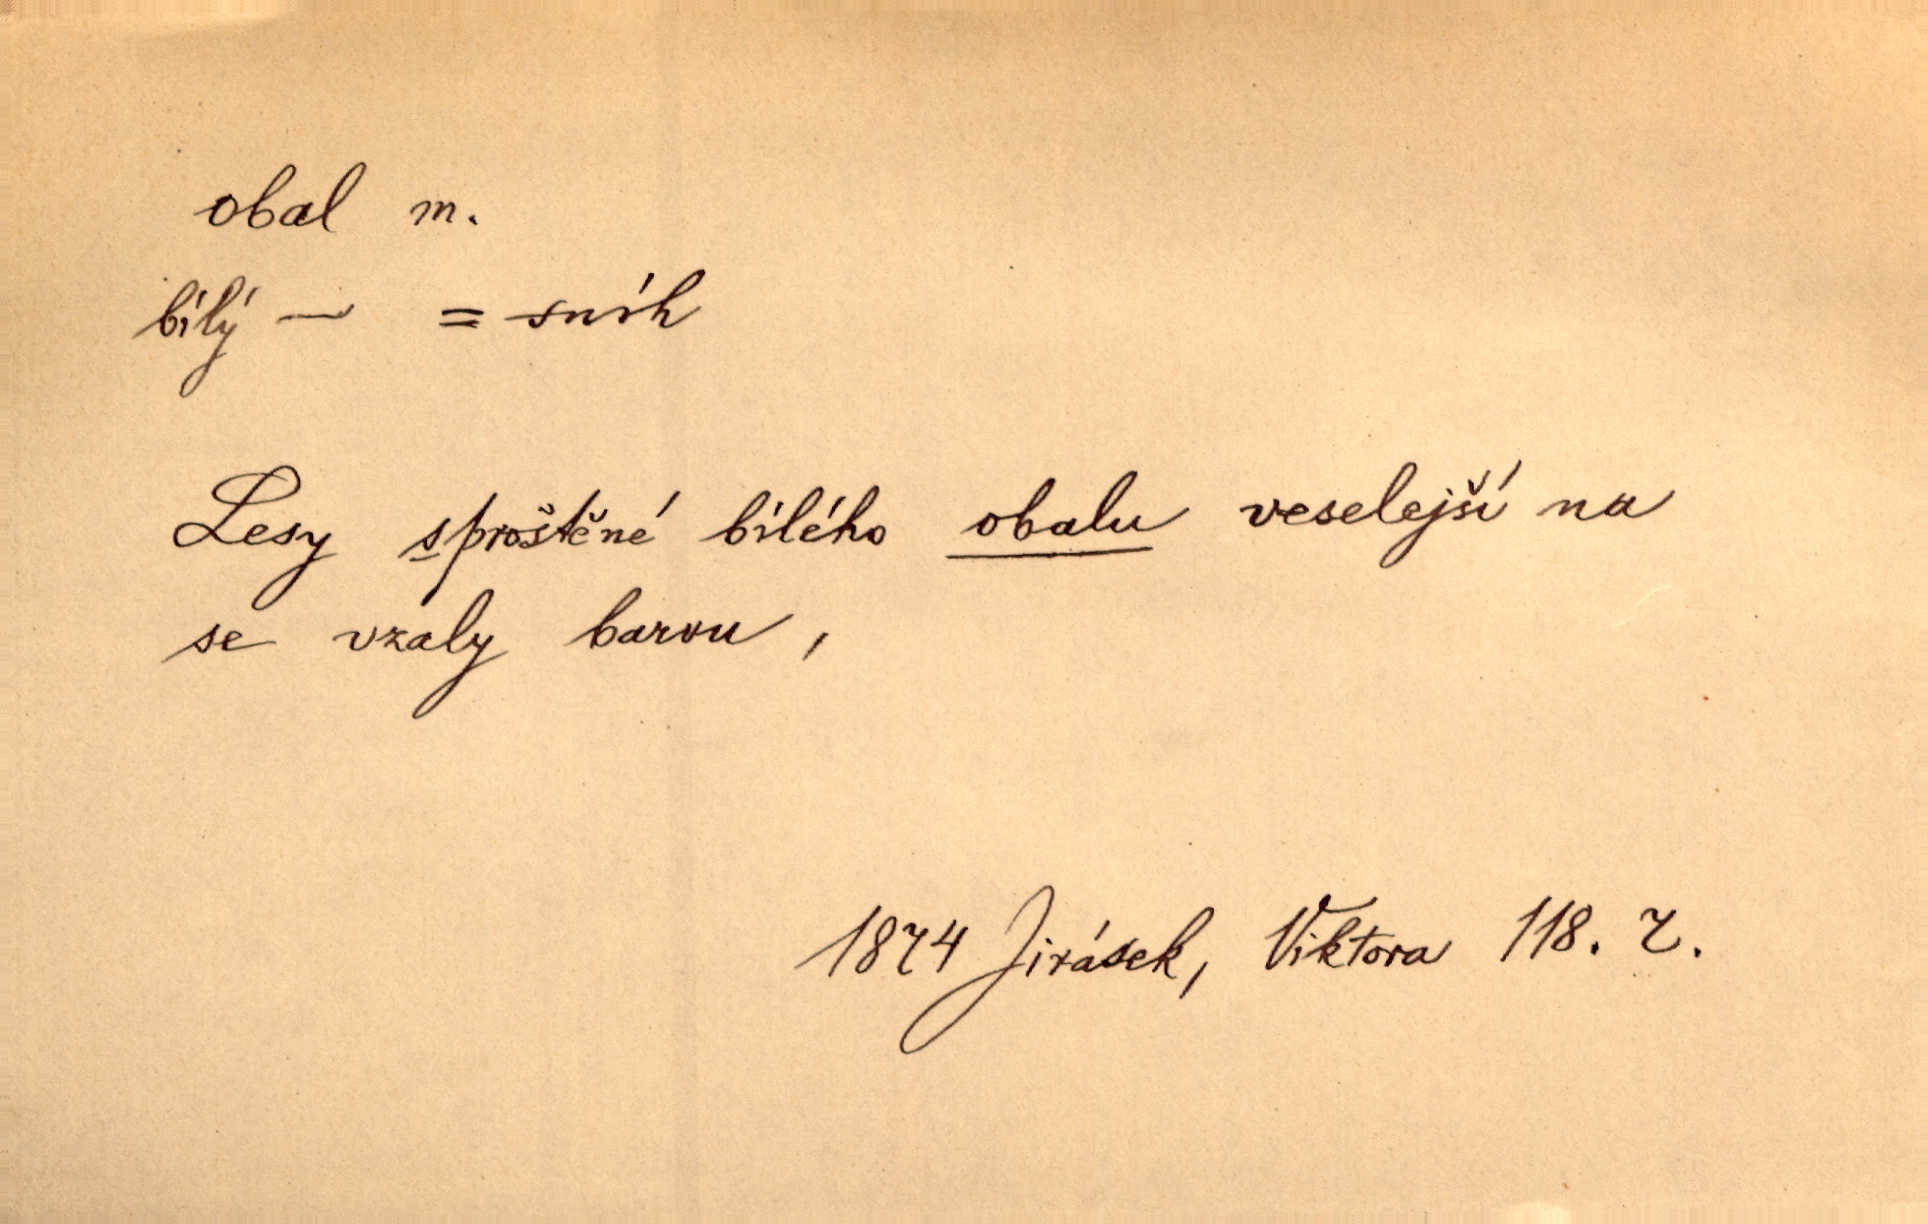 obal m.
bílý — = sníh
Lesy sproštěné bílého obalu veselejší na
se vzaly barvu,
1874 Jirásek, Viktora 118. 7.